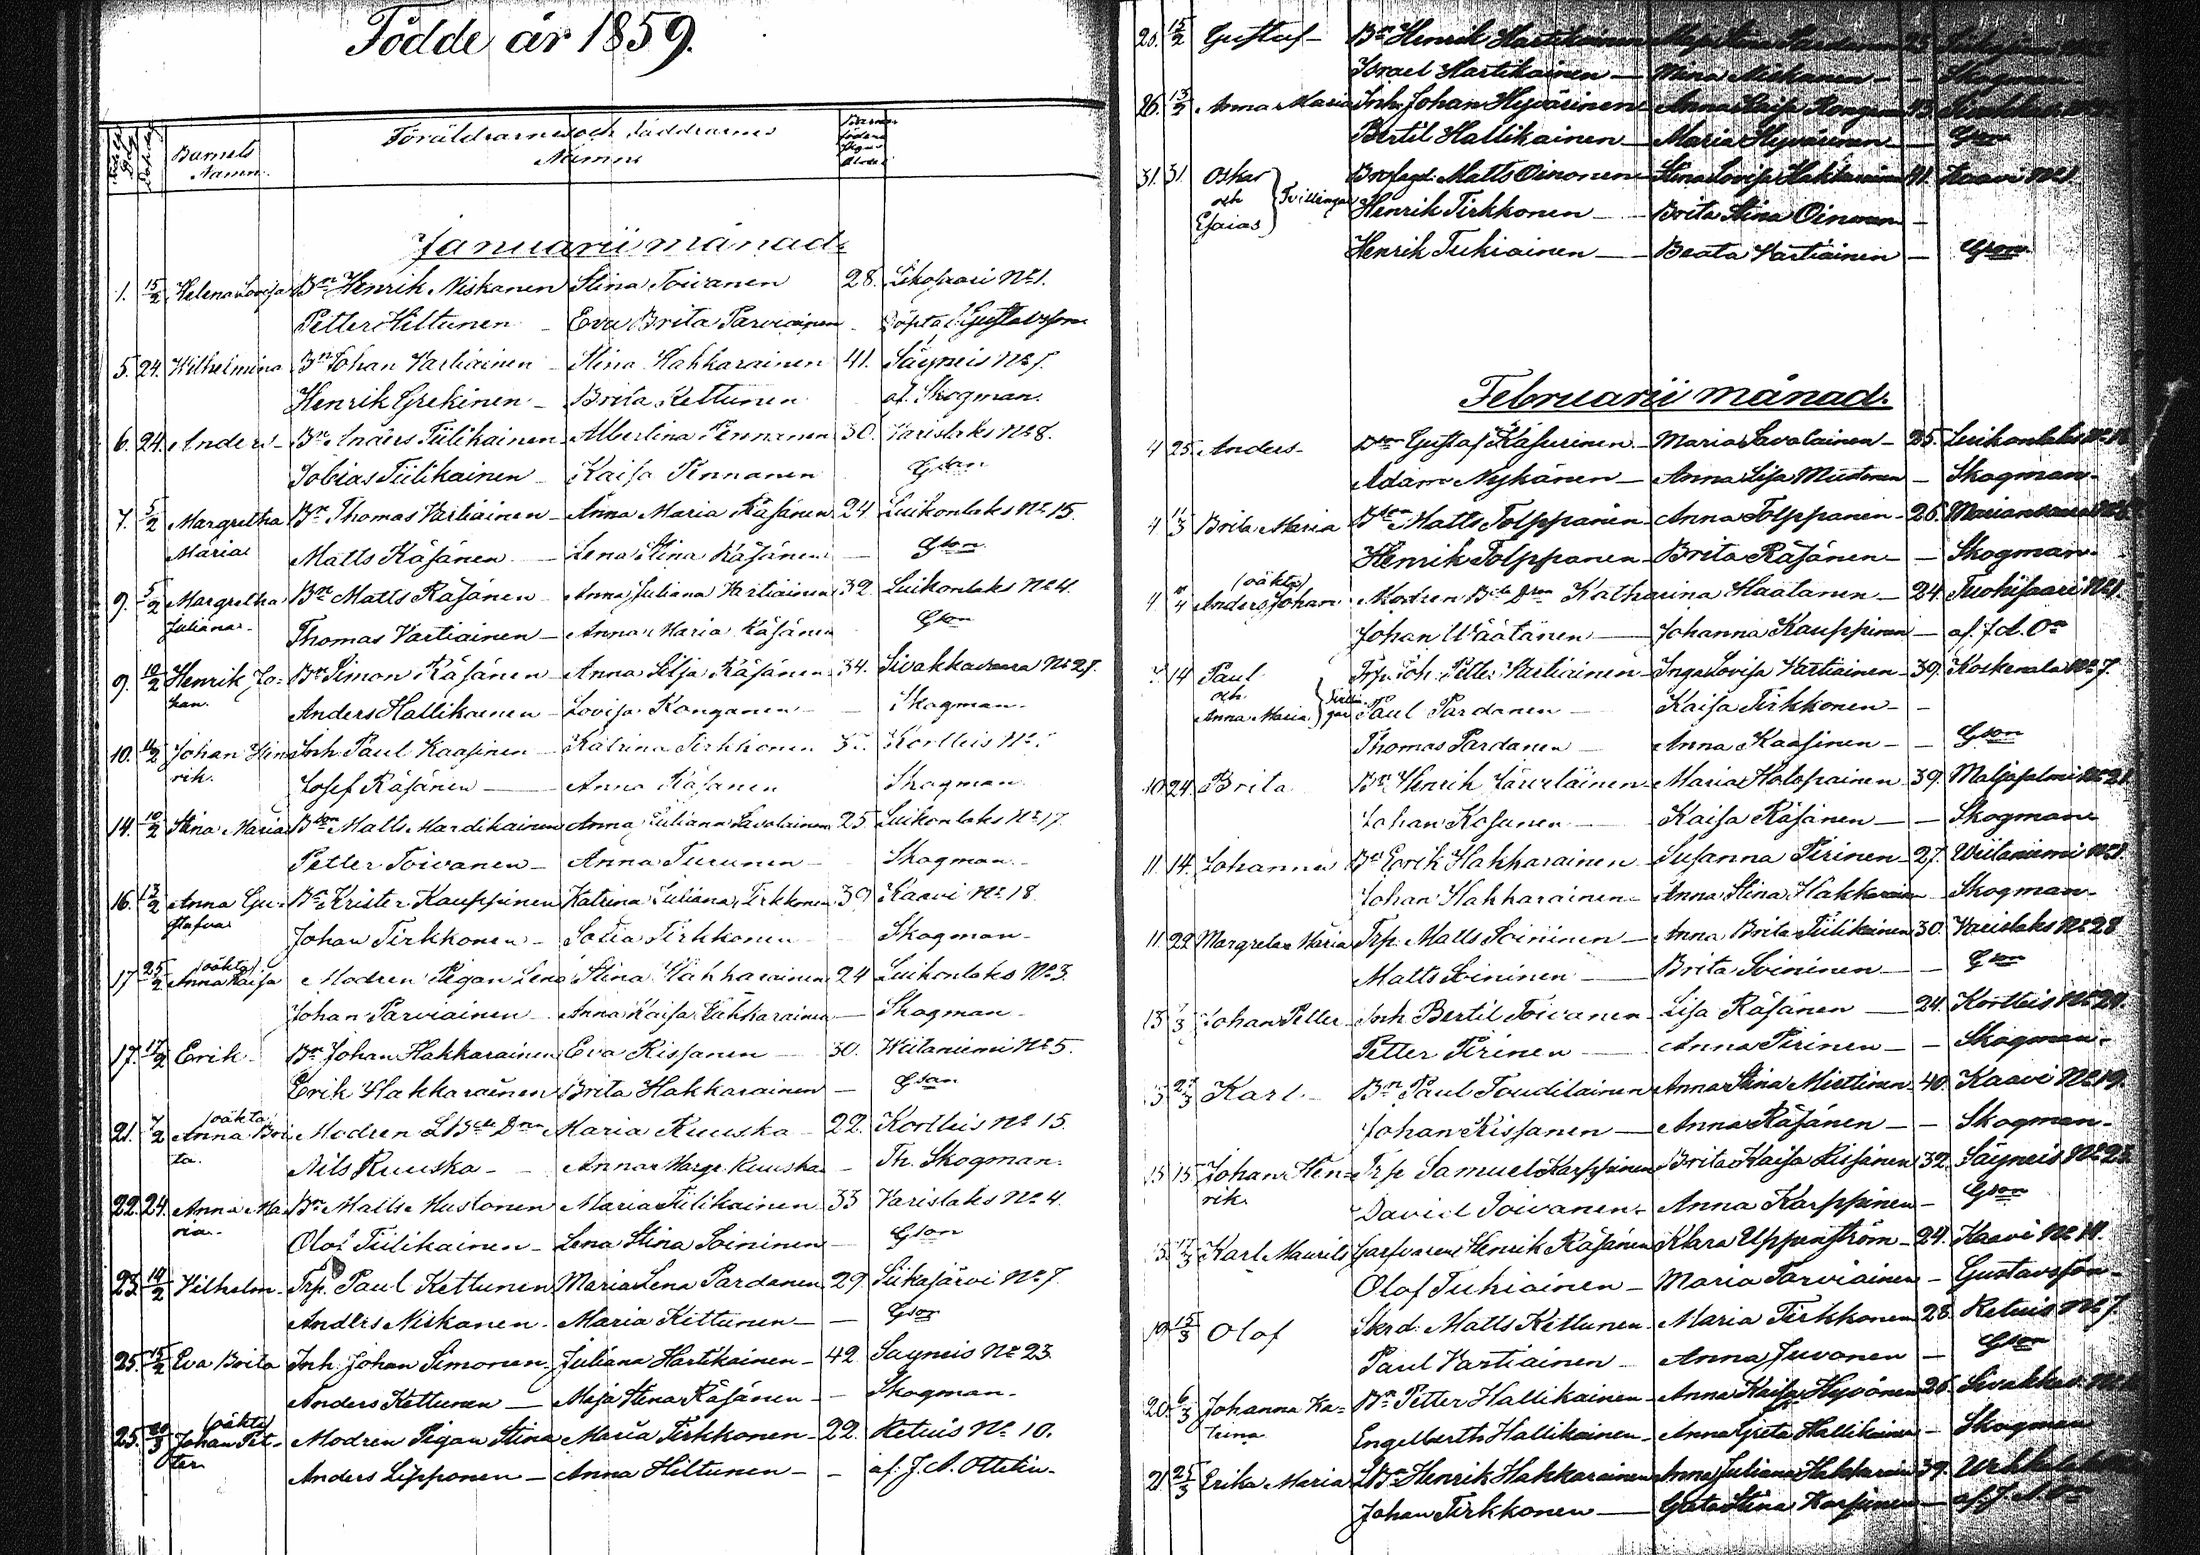 Födde år 1859.
Barnets Namn.
Föräldrarnes och Faddrarnes Namn
Januarii månad.
1. 15/2 Helena Lovisa Bn Henrik Niskanen Stina Toivanen 28. Sikosaari No 1.
Petter Hiltunen Eva Brita Parviainen Döpta Gustavsson
5. 24. Wilhelmina Bn Johan Vartiainen Stina Hakkarainen 41. Säyneis No 7.
Henrik Grekinen Brita Kettunen af Skogman.
6. 24. Anders Bn Anders Tiilikainen Albertina Pennanen 30. Varislaks No 8.
Tobias Tiilikainen Kaisa Pennanen Gson
7. 5/2 Margretha Bn Thomas Vartiainen Anna Maria Räsänen 24 Luikonlaks No 15.
Maria Matts Räsänen Lena Stina Räsänen — Gson
9. 5/2 Margretha Bn Matts Räsänen Anna Juliana Vartiainen 32 Luikonlaks No 4.
Juliana Thomas Vartiainen Anna Maria Räsänen Gson
9. 10/2 Henrik Jo= Bn Simon Räsänen Anna Lisa Räsänen 34. Sivakkavaara No 28.
han. Anders Hallikainen Lovisa Konganen Skogman.
10. 11/2 Johan Hen Inh. Paul Kaasinen Katrina Tirkkonen Kortteis No
rik. Josef Räsänen Anna Räsänen Skogman
14. 10/2 Stina Maria Bson Matts Mardikainen Anna Juliana Savolainen 25 Luikonlaks No 17.
Petter Toivanen Anna Turunen Skogman
16. 13/2 Anna Gu= Bn Krister Kauppinen Katrina Juliana Tirkkonen 39 Kaavi No 18.
stafva Johan Tirkkonen Sofia Tirkkonen Skogman
17 25/2 (oäkta) Anna Kaisa Modren Pigan Lena Stina Hakkarainen 24 Luikonlaks No 3.
Johan Parviainen Anna Kaisa Hakkarainen — Skogman
17. 17/2 Erik Bn Johan Hakkarainen Eva Rissanen 30. Wiitaniemi No 5.
Erik Hakkarainen Brita Hakkarainen — Gson
21. 7/2 (oäkta) Anna Bri Modren LBde Dren Maria Ruuska 22. Kortteis No 15.
ta. Nils Ruuska Anna Marg. Ruuska — Th. Skogman.
22. 24. Anna Ma Bn Matts Mustonen Maria Tiilikainen 33 Varislaks No 4.
ria. Olof Tiilikainen Lena Stina Soininen — Gson
23. 14/2 Vilhelm Trp. Paul Kettunen Maria Lena Pardanen 29. Siikajärvi No 7.
Anders Niskanen Maria Kettunen — Gson
25. 15/2 Eva Brita Inh. Johan Simonen Juliana Hartikainen 42 Säyneis No 23.
Anders Kettunen Maja Stina Räsänen — Skogman.
25. 20/3 (oäkta) Johan Pet= Modren Pigan Stina Maria Tirkkonen 22. Retuis No 10.
ter Anders Lipponen Anna Hiltunen — af J. A. Ottelin.
20. 15/2 Gustaf Bn Henrik Hartikainen
Israel Hartikainen — Stina Niskanen — Skogman
26. 13/2 Anna Maria Inh. Johan Hyvärinen Anna Kaisa Konganen 43.
Bertil Hallikainen Maria Hyvärinen — Gson
31. 31. Oskar Matts Oinonen Stina Lovisa Hakkarainen 41. Kaavi No
och Tvillingar Henrik Tirkkonen — Brita Stina Oinonen —
Esaias Henrik Tukiainen — Beata Vartiainen — Gson
Februarii månad.
4 25. Anders Bson Gustaf Räsänen Maria Savolainen 35. Luikonlaks No
Adam Nykänen — Anna Lisa Mustonen — Skogman.
4 11/3 Brita Maria Bson Matts Tolppanen Anna Tolppanen 26.
Henrik Tolppanen Brita Räsänen — Skogman
4 (oäkta) Anders Johan Modren Bde Dren Katharina Haatanen — 24. Tuohisaari No
Johan Väätänen — Johanna Kauppinen — af J. A. On
14 Paul Trp. Joh. Petter Vartiainen Inga Lovisa Vartiainen 39. Koskenala No 7.
och Paul Pardanen — Kaisa Tirkkonen —
Anna Maria Thomas Pardanen — Anna Kaasinen — Gson
10 24. Brita Bn Henrik Maria Holopainen 39. Maljasalmi No 21.
Johan Kosunen — Kaisa Räsänen — Skogman
11. 14. Johanna Bn Erik Hakkarainen Susanna Pirinen 27. Wiitaniemi No
Johan Hakkarainen Anna Stina Hakkarainen Skogman
11. 22. Margreta Maria Trp. Matts Soininen — Anna Brita Tiilikainen 30. Varislaks No 28
Matts Soininen — Brita Soininen — Gson
13 7/3 Johan Petter Inh Bertil Toivanen Lisa Räsänen — 24. Kortteis No 29.
Petter Pirinen — Anna Pirinen — Skogman.
13 27/3 Karl Bn Paul Toudilainen Anna Stina Miettinen 40. Kaavi No 19.
Johan Rissanen — Anna Räsänen — Skogman.
15 15 Johan Hen= Trp Samuel Karppinen Brita Kaisa Rissanen 32. Säyneis No 23.
rik. David Toivanen Anna Karppinen — Gson
15. 17/3 Karl Maurits Garfvaren Henrik Räsänen Klara Uppenström 24. Kaavi No 14.
Olof Tukiainen — Maria Parviainen — Gustavsson
19. 15/3 Olof Matts Kettunen Maria Tirkkonen 28. Retuis No 7.
Paul Vartiainen Anna Juvonen — Gson
20. 6/3 Johanna Ka= Bn Petter Hallikainen Anna Kaisa Hyvönen 26.
trina Engelberth Hallikainen Anna Greta Hallikainen — Skogman
21. 25/3 Erika Maria LBn Henrik Hakkarainen Anna Juliana Hakkarainen 39.
Johan Tirkkonen — Greta Stina Karppinen —